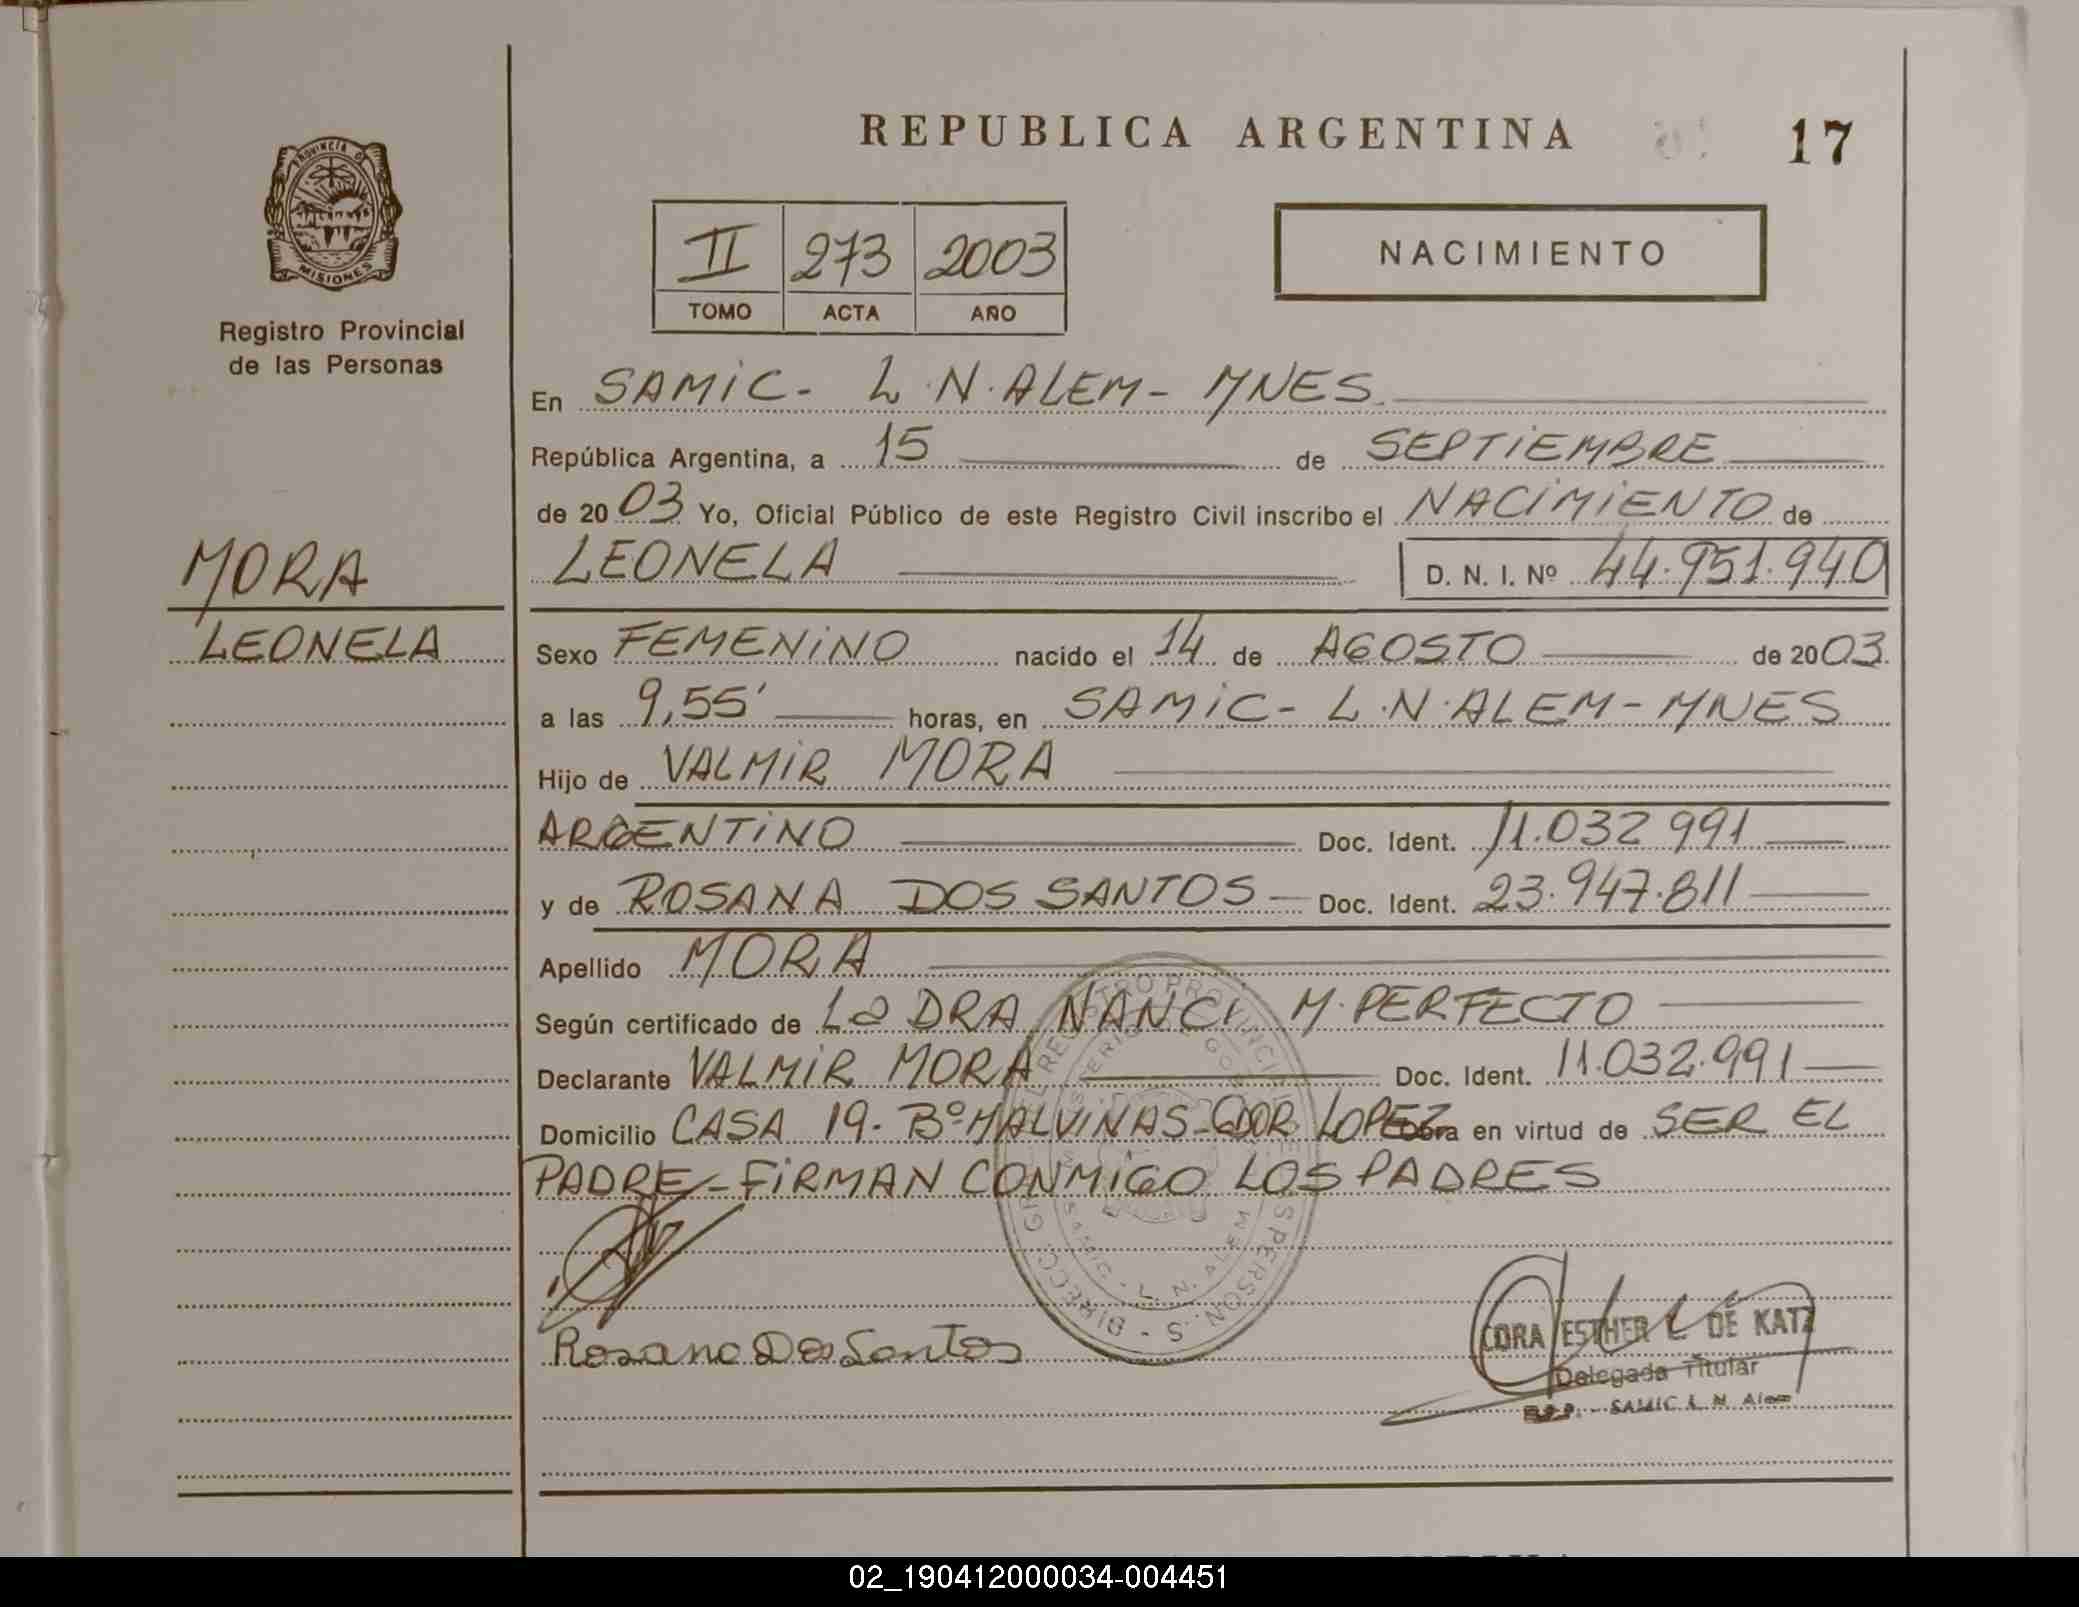 REPUBLICA ARGENTINA
17
PROVINCIA D
MISIONES
Registro Provincial
de las Personas
II 273 2003
TOMO ACTA AÑO
NACIMIENTO
En SAMIC- L.N.ALEM- MNES.
República Argentina, a 15 de SEPTIEMBRE
de 2003 Yo, Oficial Público de este Registro Civil inscribo el NACIMIENTO de
LEONELA D. N. I. Nº 44.951.940
MORA
LEONELA
Sexo FEMENINO nacido el 14 de AGOSTO de 2003.
a las 9,55' horas, en SAMIC- L.N.ALEM-MNES
Hijo de VALMIR MORA
ARGENTINO Doc. Ident. 11.032.991
y de ROSANA DOS SANTOS Doc. Ident. 23.947.811
Apellido MORA
Según certificado de La DRA NANCI M. PERFECTO
Declarante VALMIR MORA Doc. Ident. 11.032.991
Domicilio CASA 19- Bº MALVINAS-GDOR LOPEZ obra en virtud de SER EL
PADRE-FIRMAN CONMIGO LOS PADRES
Rosana Dos Santos
CORA ESTHER L. DE KATZ
Delegada Titular
SAMIC L. N. Alem
02_190412000034-004451